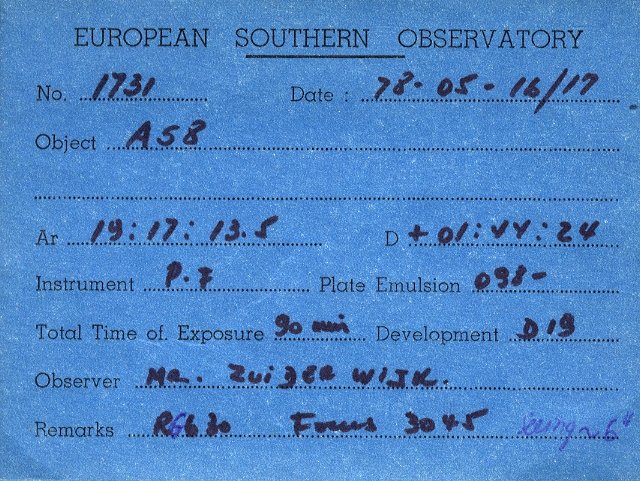 EUROPEAN SOUTHERN OBSERVATORY
No. 1731 Date : 78-05-16/17
Object A58
Ar 19:17:13.5 D +01:44:24
Instrument P.F Plate Emulsion 098-
Total Time of. Exposure 90 min Development D19
Observer Mr. ZUIDERWIJK.
Remarks RG630 Focus 3045 Seeing ~ 6"